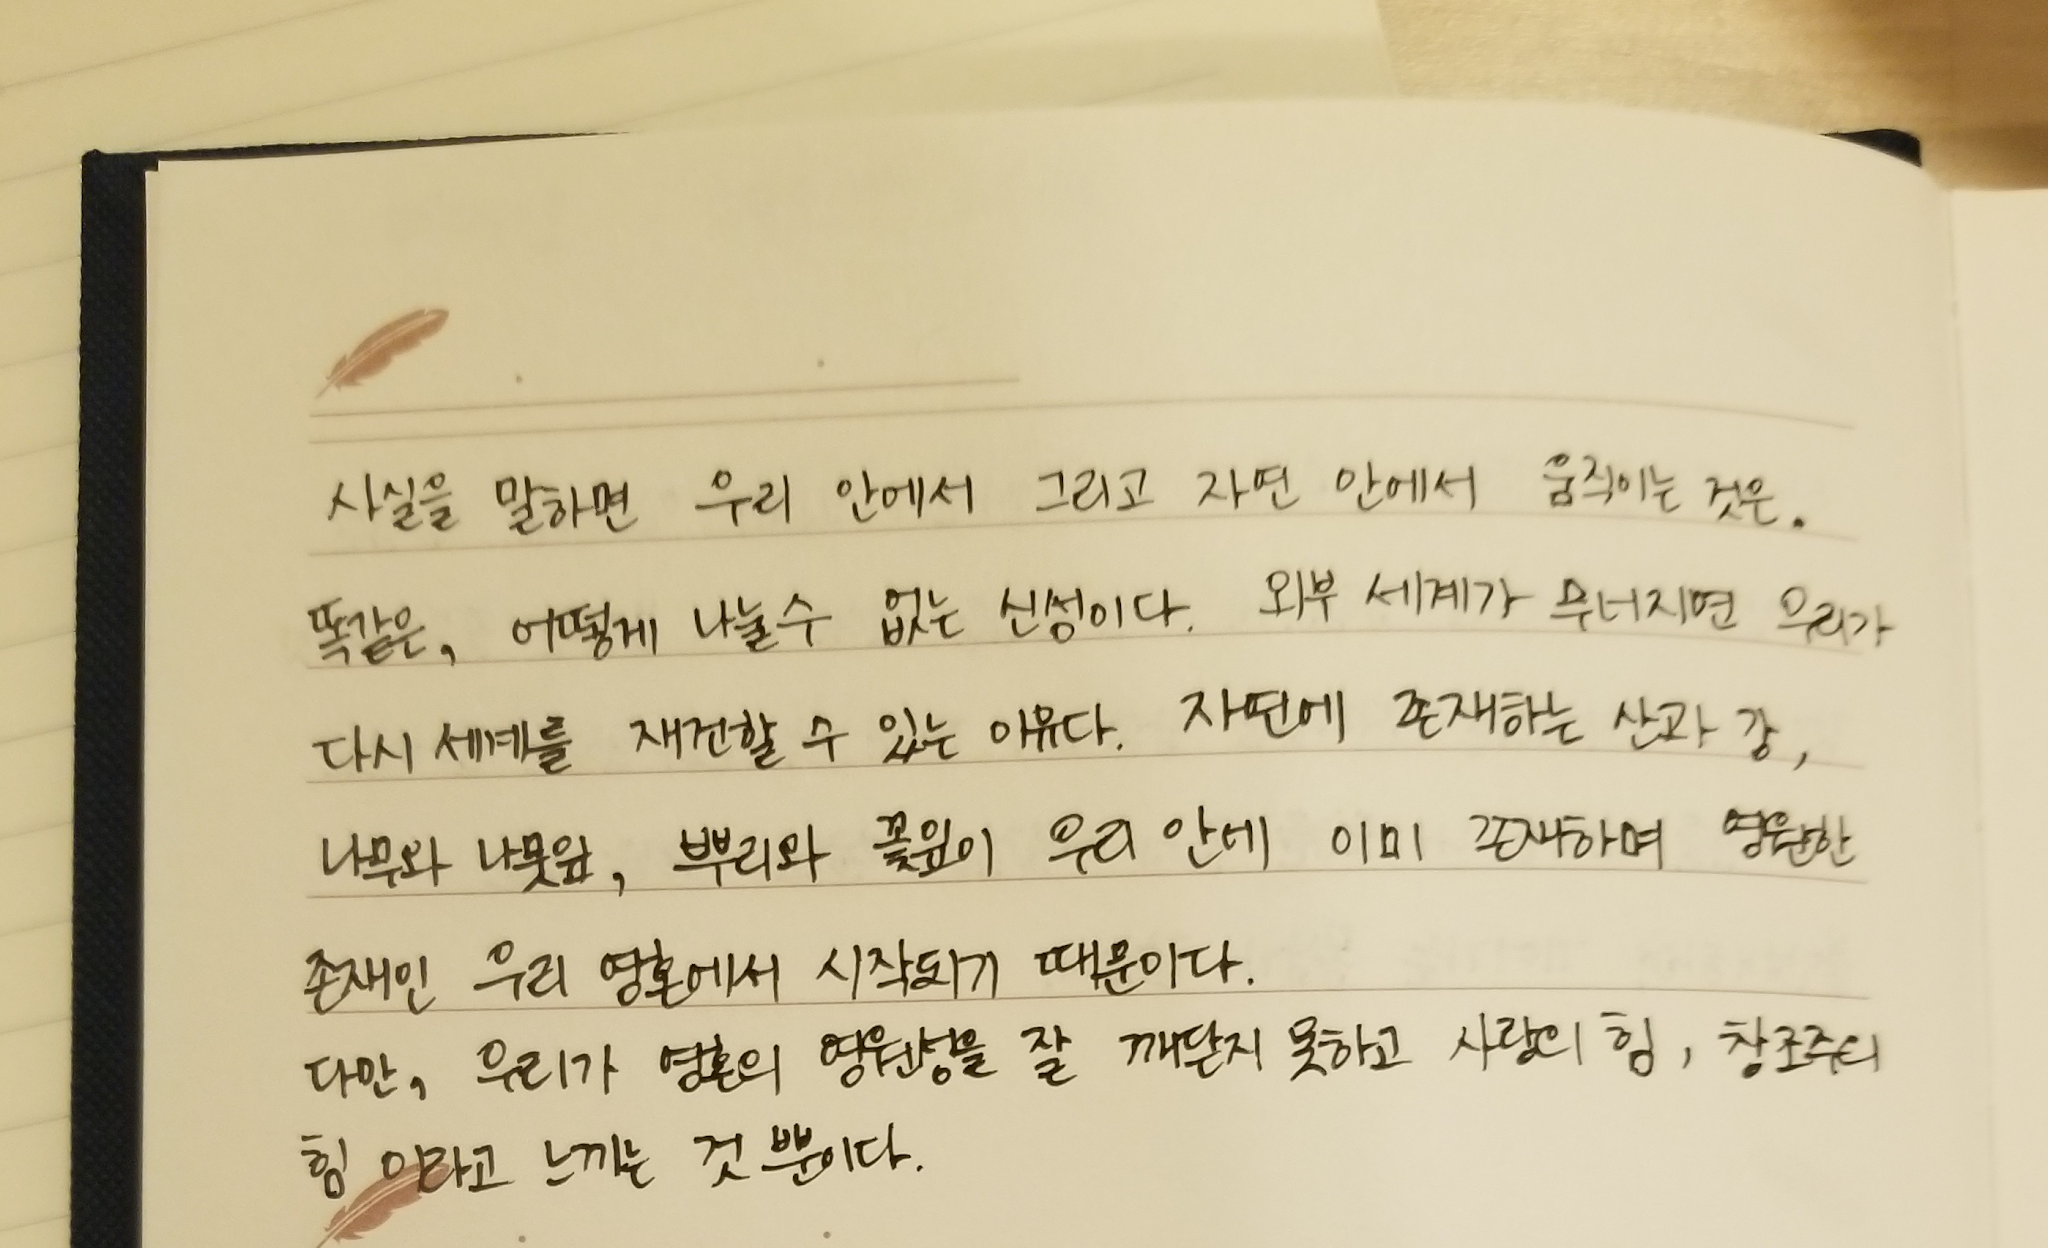 사실을 말하면 우리 안에서 그리고 자연 안에서 움직이는 것은.
똑같은, 어떻게 나눌수 없는 신성이다. 외부 세계가 무너지면 우리가
다시 세계를 재건할 수 있는 이유다. 자연에 존재하는 산과 강,
나무와 나뭇잎, 뿌리와 꽃잎이 우리 안에 이미 존재하며 영원한
존재인 우리 영혼에서 시작되기 때문이다.
다만, 우리가 영혼의 영원성을 잘 깨닫지 못하고 사랑의 힘, 창조주의
힘 이라고 느끼는 것 뿐이다.